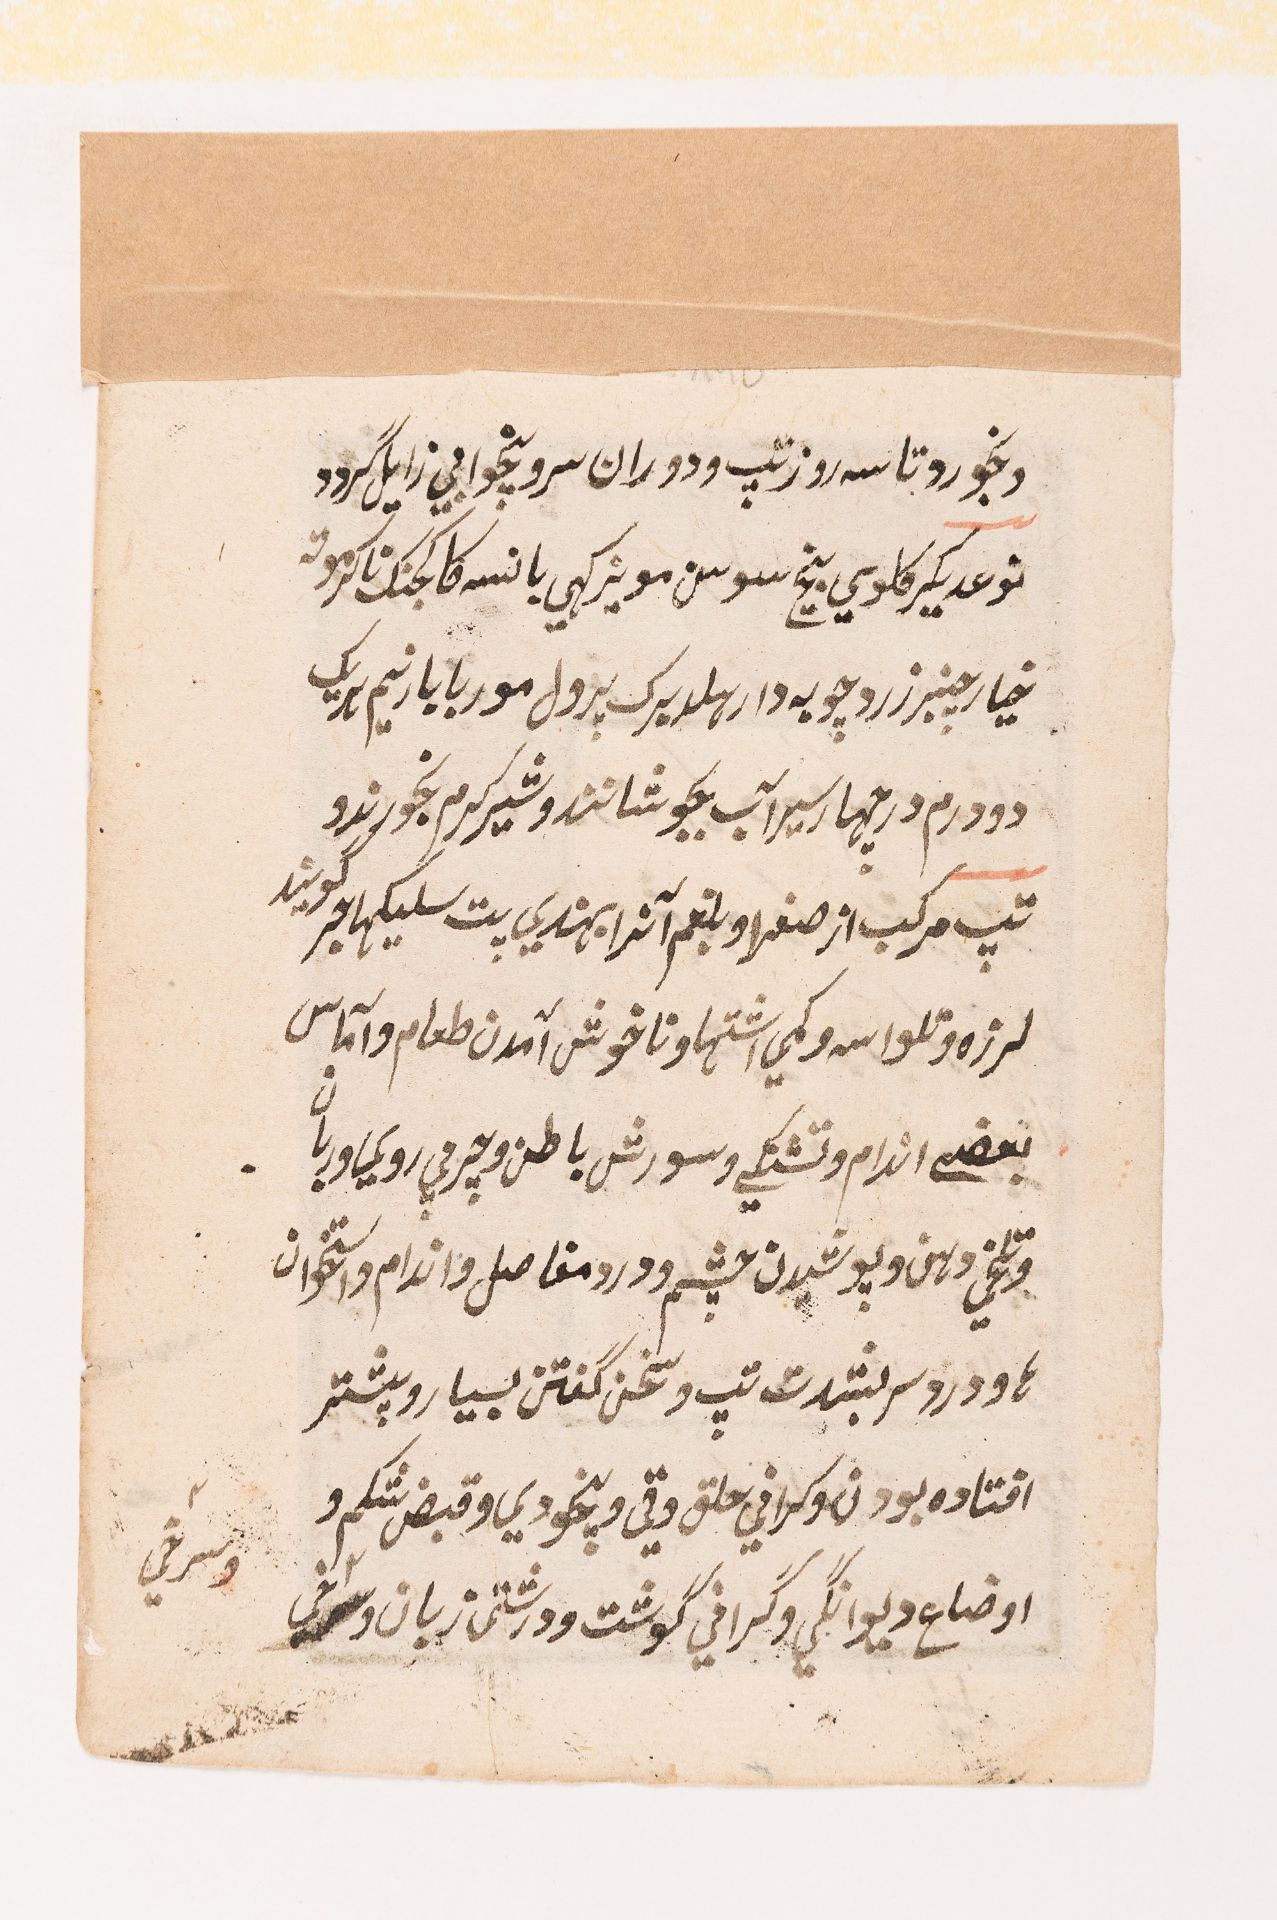 و بخورد تا سه روز تپ و دوران سر و بیخوابی زایل گردد
نوعدیگر کلوی بیخ سوسن مویز کهی بانسه کاکجنک ناکرموته
خیار چنبر زرد چوبه دار هلد برک پرول مور با بارنیم هریک
دو درم در چهار سیر آب بجوشانند و شیر کرم بخورند و
تپ مرکب از صفرا و بلغم آنرا بهندی پت سلیکها جر گویند
لرزه و تلواسه و کمی اشتها و ناخوش آمدن طعام و آماس
بعضی اندام و تشنکی و سورش باطن و چربی روی و زبان
و تلخی دهن و پوشیدن چشم و درد مفاصل و اندام و استخوان
ها و درد سر بشدت تپ و سخن گفتن بسیار و پیشتر
افتاده بودن و کرانی حلق و قی و بیخودی و قبض شکم و
اوضاع دیوانگی و گرانی گوشت و درشتی زبان و سرخی
و سرخی